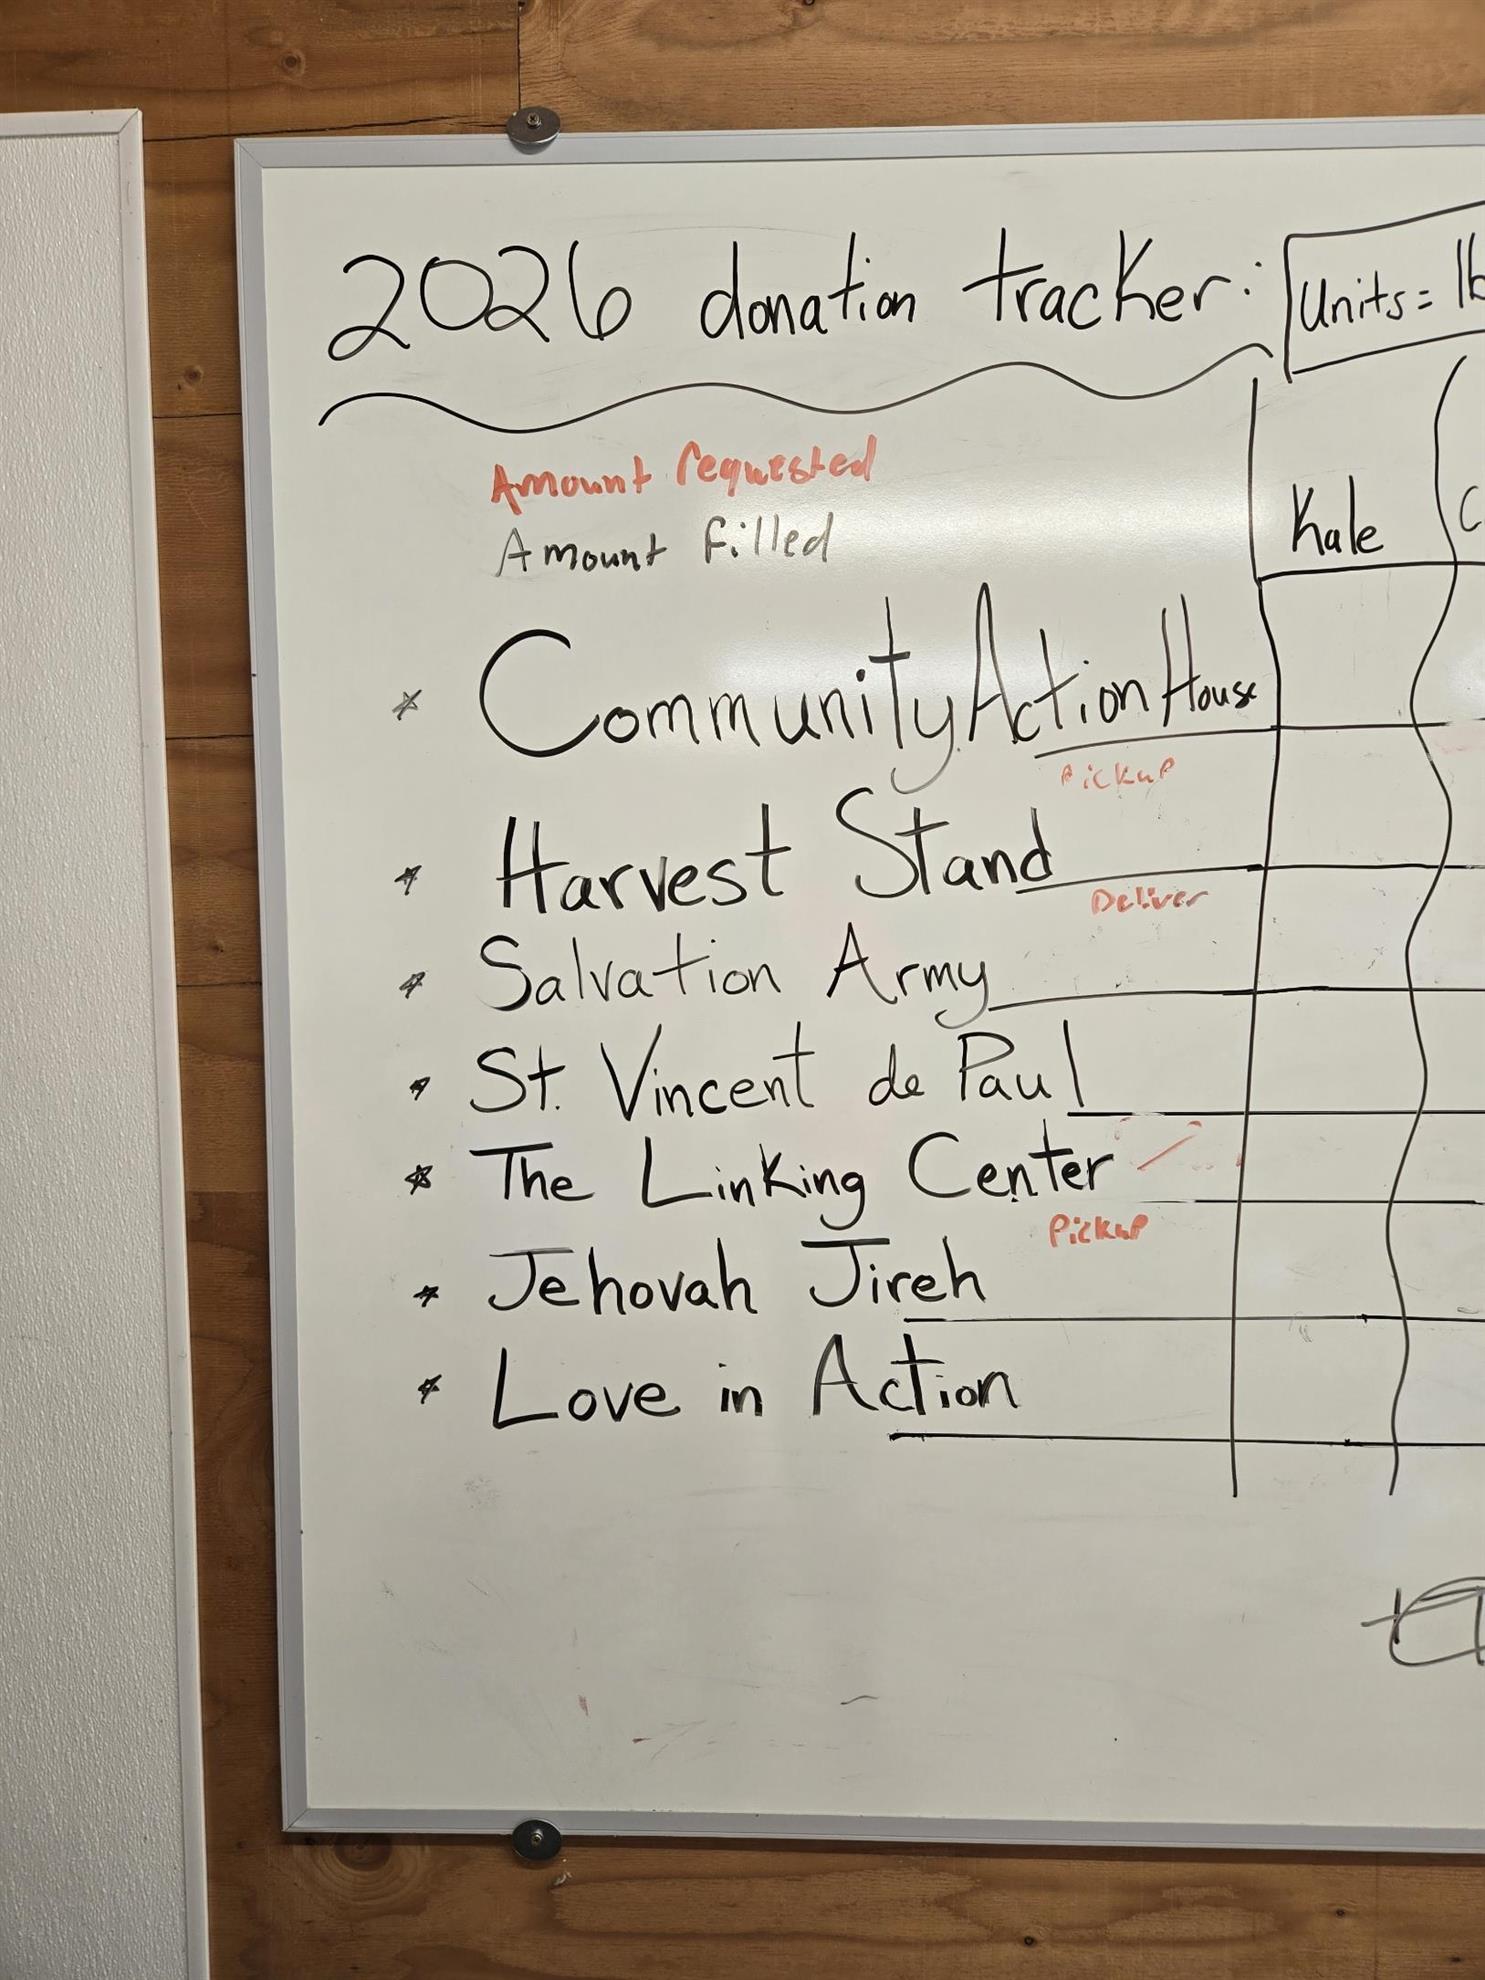 2026 donation tracker: Units = lb
Amount requested
Amount filled
Kale
* Community Action House
Pickup
* Harvest Stand
Deliver
* Salvation Army
* St. Vincent de Paul
* The Linking Center
Pickup
* Jehovah Jireh
* Love in Action